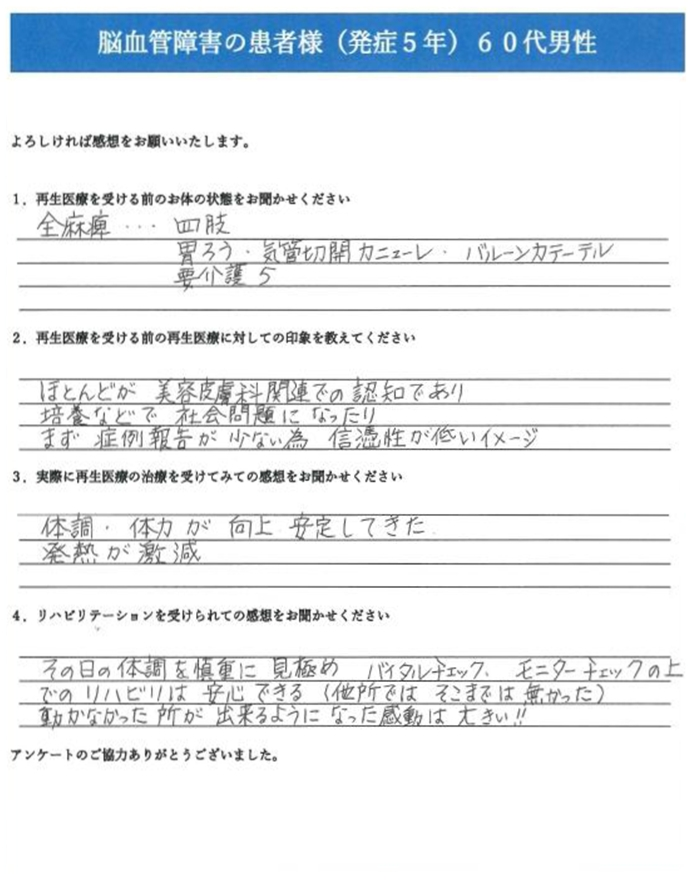 脳血管障害の患者様（発症５年）６０代男性
よろしければ感想をお願いいたします。
１．再生医療を受ける前のお体の状態をお聞かせください
全麻痺 ・・・ 四肢
胃ろう・気管切開カニューレ・バルーンカテーテル
要介護 5
２．再生医療を受ける前の再生医療に対しての印象を教えてください
ほとんどが 美容皮膚科関連での認知であり
培養などで 社会問題に なったり
まず 症例報告が 少ない為 信憑性が低いイメージ
３．実際に再生医療の治療を受けてみての感想をお聞かせください
体調・体力が 向上 安定してきた
発熱が激減
４．リハビリテーションを受けられての感想をお聞かせください
その日の体調を慎重に 見極め バイタルチェック、モニターチェックの上
でのリハビリは 安心できる（他所では そこまでは 無かった）
動かなかった所が 出来るように なった感動は 大きい!!
アンケートのご協力ありがとうございました。